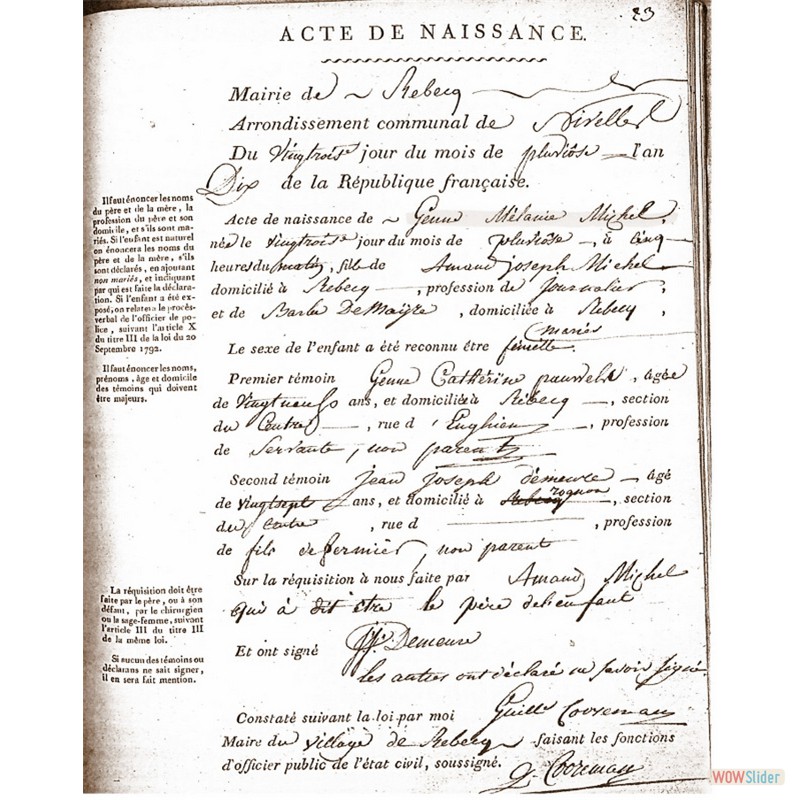 23
ACTE DE NAISSANCE.
Mairie de Rebecq
Arrondissement communal de Nivelles
Du vingtrois jour du mois de pluviose l'an
Dix de la République française.
Il faut énoncer les noms
du père et de la mère, la
profession du père et son
domicile, et s'ils sont ma-
riés. Si l'enfant est naturel
on énoncera les noms du
père et de la mère, s'ils
sont déclarés, en ajoutant
non mariés, et indiquant
par qui est faite la déclara-
tion. Si l'enfant a été ex-
posé, on relatera le procès-
verbal de l'officier de po-
lice, suivant l'article X
du titre III de la loi du 20
Septembre 1792.
Il faut énoncer les noms,
prénoms, âge et domicile
des témoins qui doivent
être majeurs.
Acte de naissance de Genne Mélanie Michel,
née le vingtrois jour du mois de pluviose, à cinq
heures du matin, fille de Amand joseph Michel
domicilié à Rebecq, profession de journalier,
et de Barbe DeMaÿre, domiciliée à Rebecq,
mariés
Le sexe de l'enfant a été reconnu être femelle.
Premier témoin Genne Catherine pauwels, âgée
de vingtneuf ans, et domiciliée à Rebecq, section
du Centre, rue d'Enghien, profession
de Servante, non parent
Second témoin jean joseph demeure âgé
de vingtsept ans, et domicilié à Rebecq rognon, section
du Centre, rue d, profession
de fils de fermier, non parent
La réquisition doit être
faite par le père, ou à son
défaut, par le chirurgien
ou la sage-femme, suivant
l'article III du titre III
de la même loi.
Si aucun des témoins ou
déclarans ne sait signer,
il en sera fait mention.
Sur la réquisition à nous faite par Amand Michel
qui à dit être le père de l'enfant
Et ont signé JJ. Demeure
les autres ont déclaré ne savoir signé.
Constaté suivant la loi par moi Guille Cooreman
Maire du village de Rebecq faisant les fonctions
d'officier public de l'état civil, soussigné.
g. Cooreman
WOWSlider